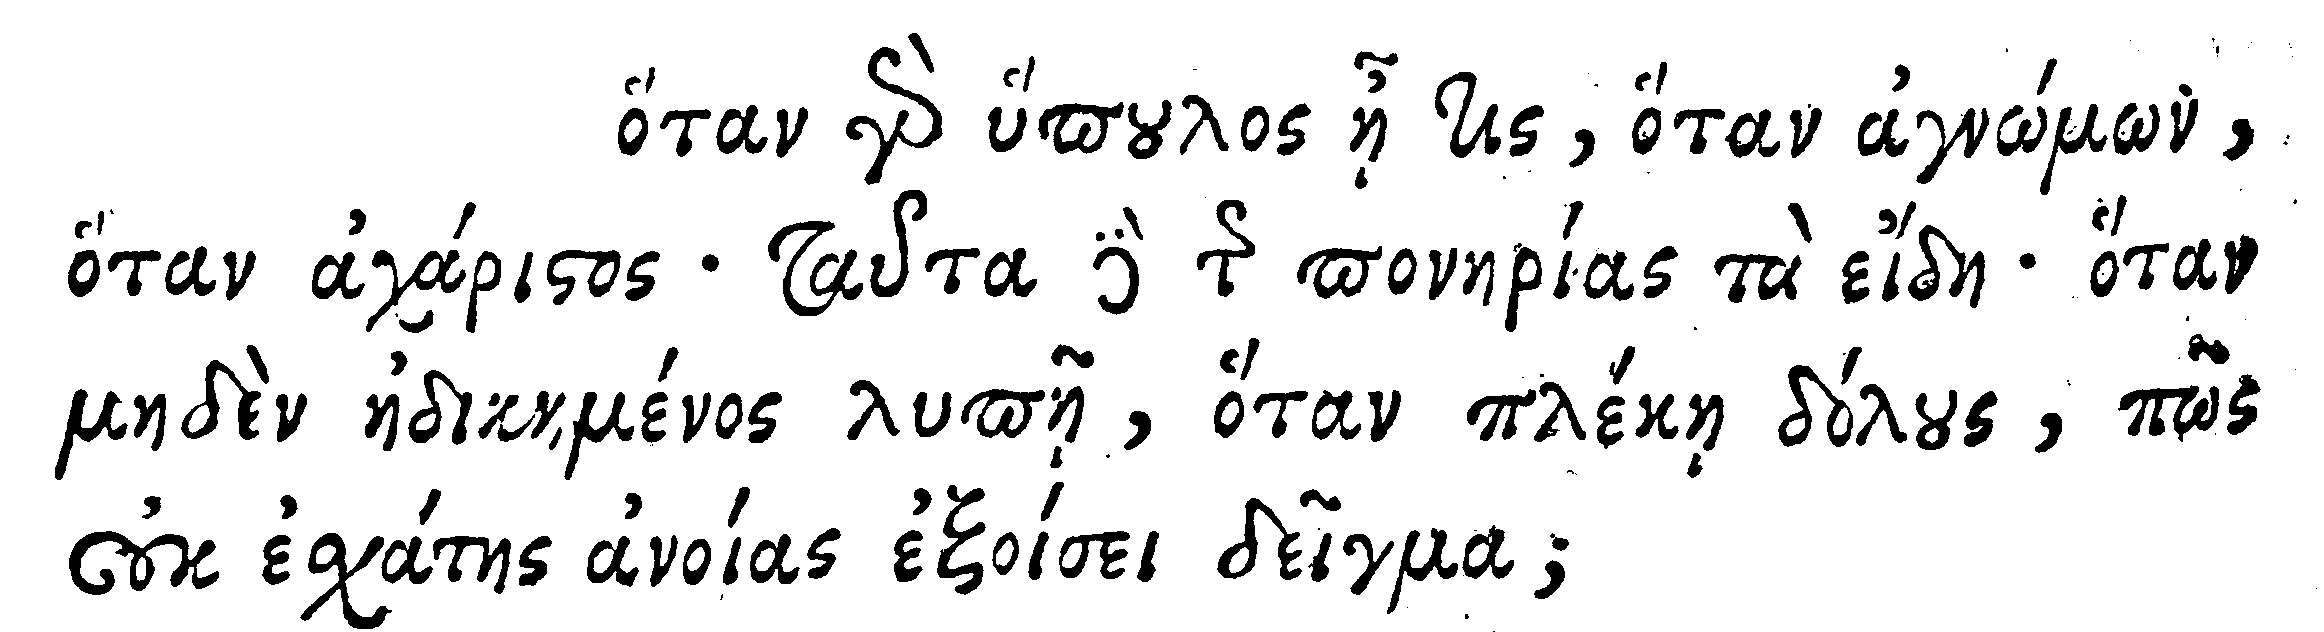 ὅταν γὰρ ὕπουλος ᾖ τις, ὅταν ἀγνώμων,
ὅταν ἀχάριστος· ταῦτα γὰρ τῆς πονηρίας τὰ εἴδη· ὅταν
μηδὲν ἠδικημένος λυπῇ, ὅταν πλέκῃ δόλους, πῶς
οὐκ ἐσχάτης ἀνοίας ἐξοίσει δεῖγμα;